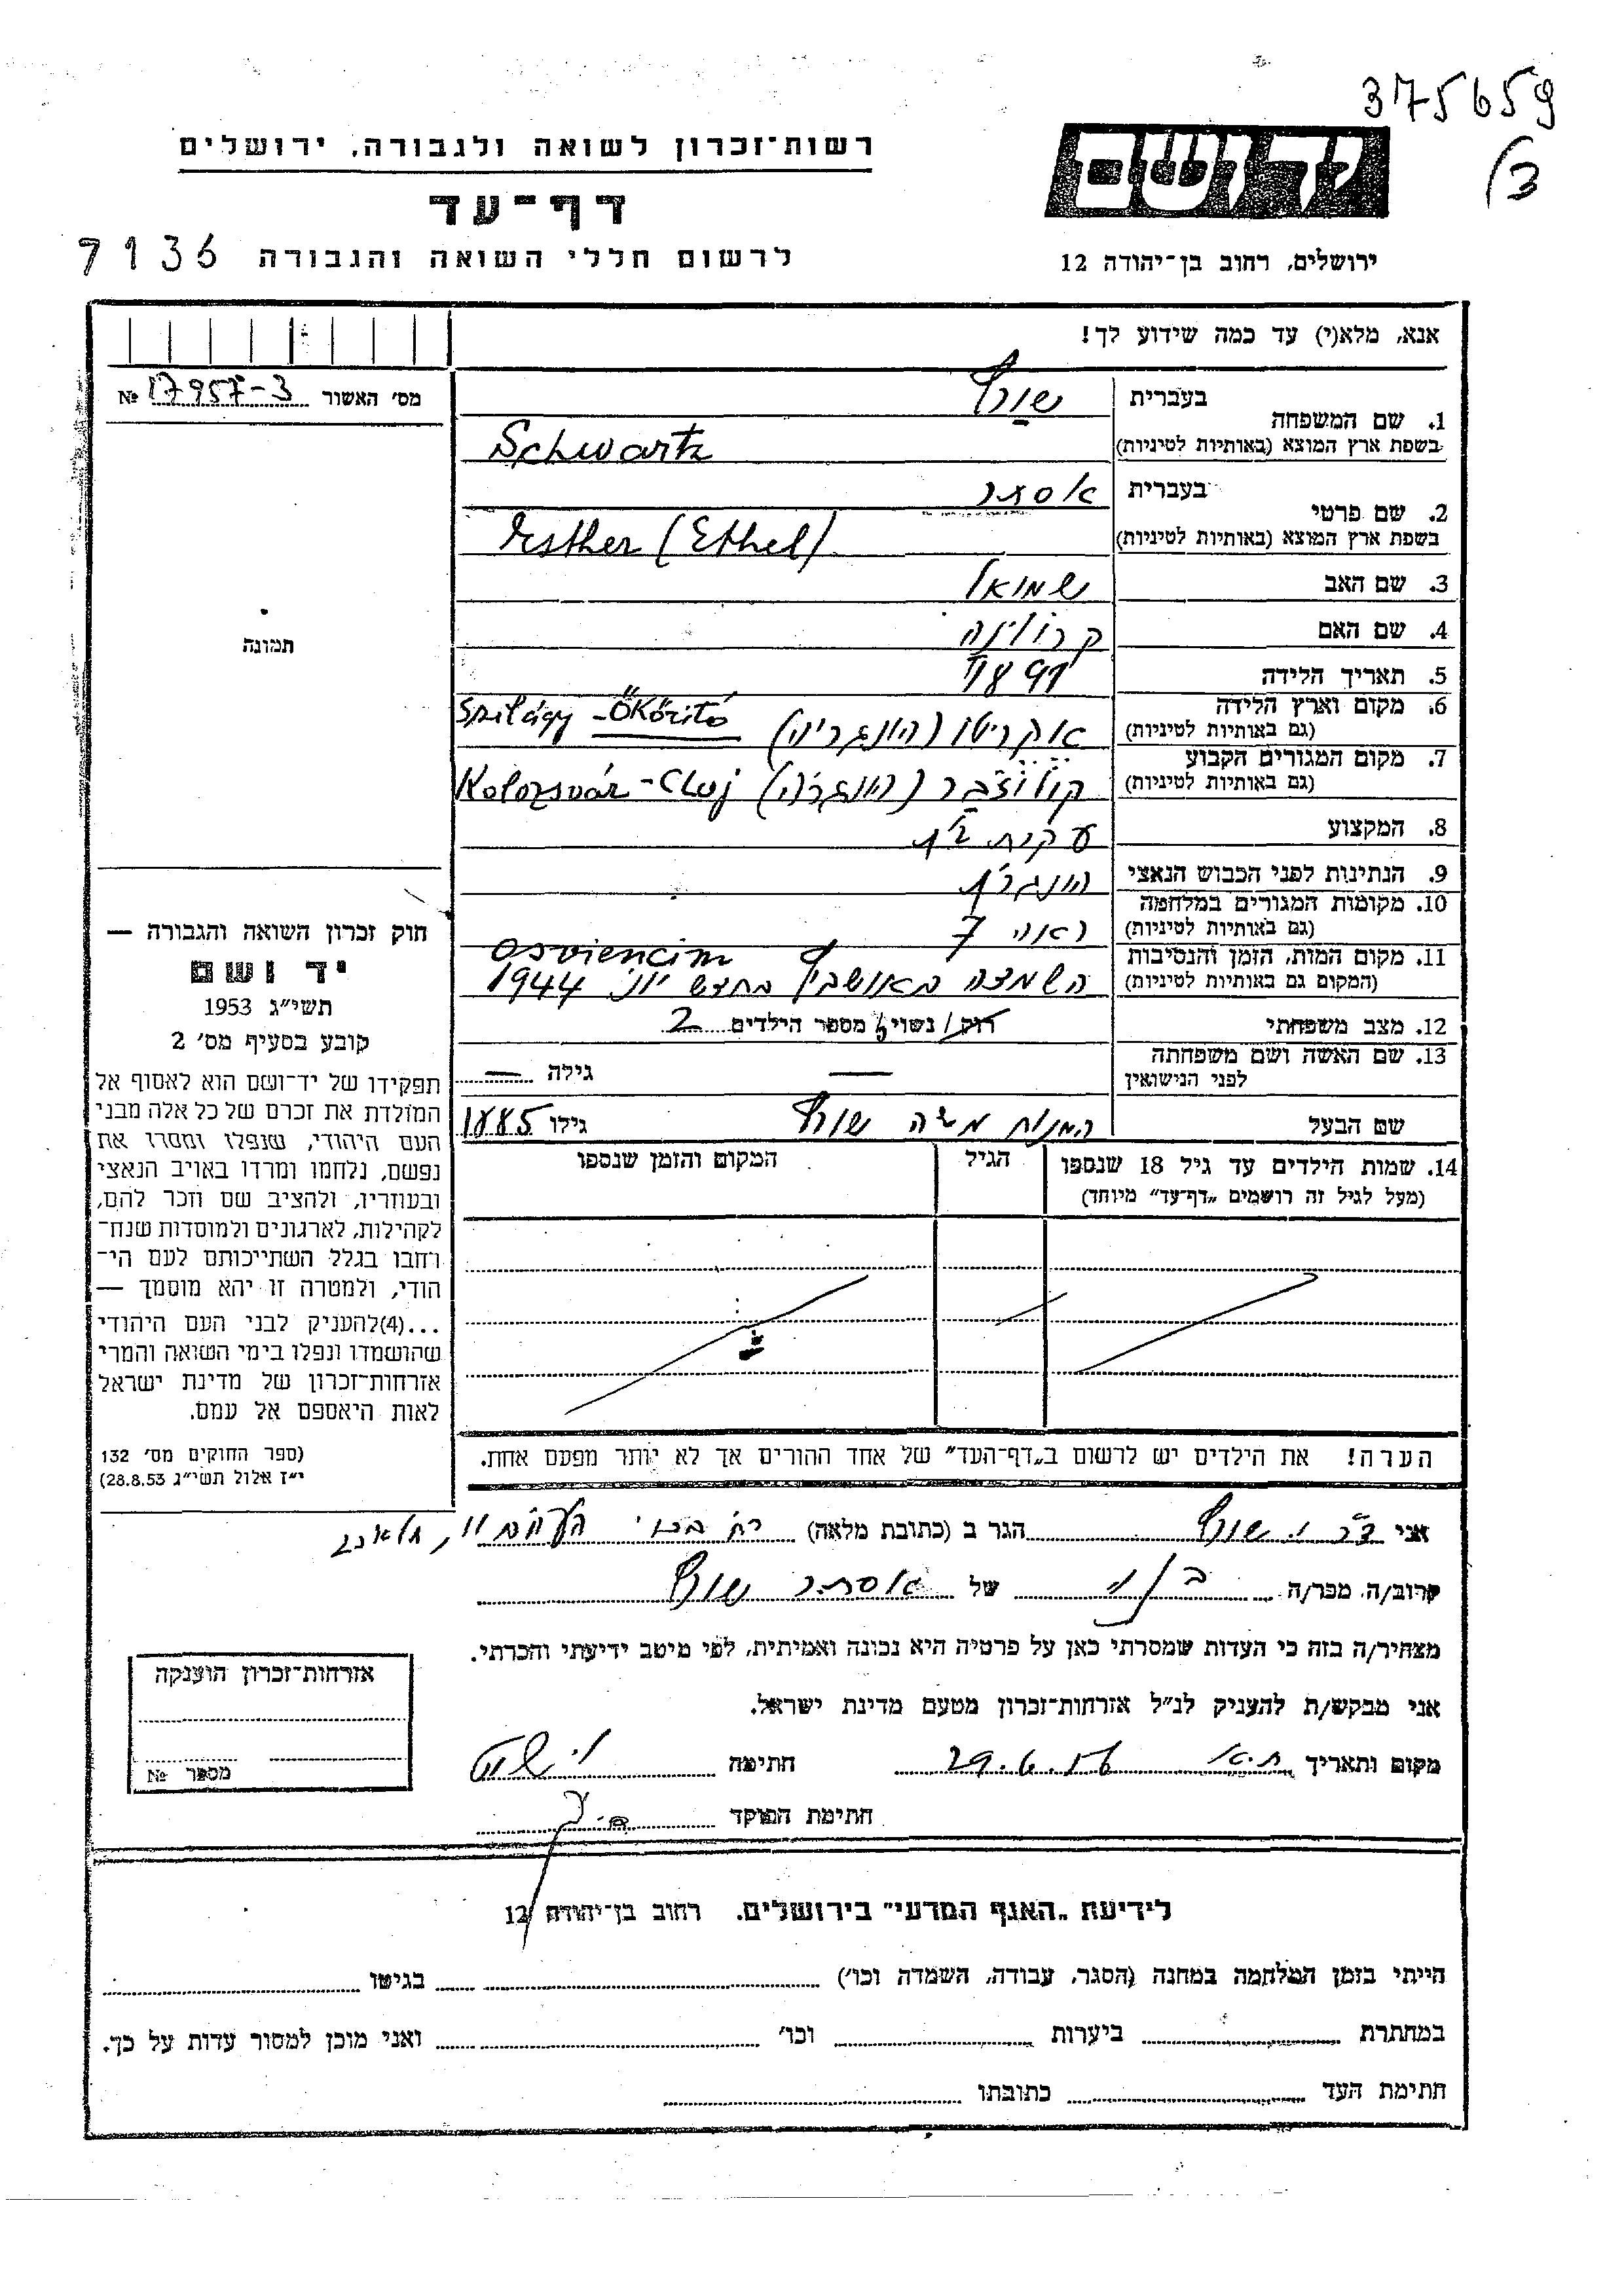 375659
רשות־זכרון לשואה ולגבורה, ירושלים
יד ושם
דף־עד
לרשום חללי השואה והגבורה 7136
ירושלים, רחוב בן־יהודה 12
אנא, מלא(י) עד כמה שידוע לך!
מס' האשור 17957-3 №
תמונה
1. שם המשפחה
בעברית שורץ
בשפת ארץ המוצא (באותיות לטיניות) Schwartz
2. שם פרטי
בעברית אסתר
בשפת ארץ המוצא (באותיות לטיניות) Esther (Ethel)
3. שם האב שמואל
4. שם האם קרולינה
5. תאריך הלידה 1891
6. מקום וארץ הלידה
(גם באותיות לטיניות) אקריטו (הונגריה) Szilágy-Ökörító
7. מקום המגורים הקבוע
(גם באותיות לטיניות) קולוז'בר (הונגריה) Kolozsvár-Cluj
8. המקצוע עקרת בית
9. הנתינות לפני הכבוש הנאצי הונגרית
10. מקומות המגורים במלחמה
(גם באותיות לטיניות) ראה 7
11. מקום המות, הזמן והנסיבות
(המקום גם באותיות לטיניות) Osviencim
השמדה באושביץ בחדש יוני 1944
12. מצב משפחתי רוק/נשוי/ה מספר הילדים 2
13. שם האשה ושם משפחתה
לפני הנישואין — גילה —
שם הבעל המנוח משה שורץ גילו 1885
14. שמות הילדים עד גיל 18 שנספו
(מעל לגיל זה רושמים „דף־עד" מיוחד)
הגיל
המקום והזמן שנספו
הערה! את הילדים יש לרשום ב„דף־העד" של אחד ההורים אך לא יותר מפעם אחת.
חוק זכרון השואה והגבורה —
יד ושם
תשי"ג 1953
קובע בסעיף מס' 2
תפקידו של יד־ושם הוא לאסוף אל
המולדת את זכרם של כל אלה מבני
העם היהודי, שנפלו ומסרו את
נפשם, נלחמו ומרדו באויב הנאצי
ובעוזריו, ולהציב שם וזכר להם,
לקהילות, לארגונים ולמוסדות שנח־
רחבו בגלל השתייכותם לעם הי־
הודי, ולמטרה זו יהא מוסמך —
...(4)להעניק לבני העם היהודי
שהושמדו ונפלו בימי השואה והמרי
אזרחות־זכרון של מדינת ישראל
לאות היאספם אל עמם.
(ספר החוקים מס' 132
י"ז אלול תשי"ג 28.8.53)
אני ד"ר י. שורץ הגר ב (כתובת מלאה) רח'
קרוב/ה מכר/ה בן של אסתר שורץ
מצהיר/ה בזה כי העדות שמסרתי כאן על פרטיה היא נכונה ואמיתית, לפי מיטב ידיעתי והכרתי.
אני מבקש/ת להעניק לנ"ל אזרחות־זכרון מטעם מדינת ישראל.
מקום ותאריך ת.א. 29.6.56 חתימה
חתימת הפוקד
אזרחות־זכרון הוענקה
מספר №
לידיעת „האגף המדעי" בירושלים. רחוב בן־יהודה 12
הייתי בזמן המלחמה במחנה (הסגר, עבודה, השמדה וכו') בגיטו
במחתרת ביערות וכו' ואני מוכן למסור עדות על כך.
חתימת העד כתובתו